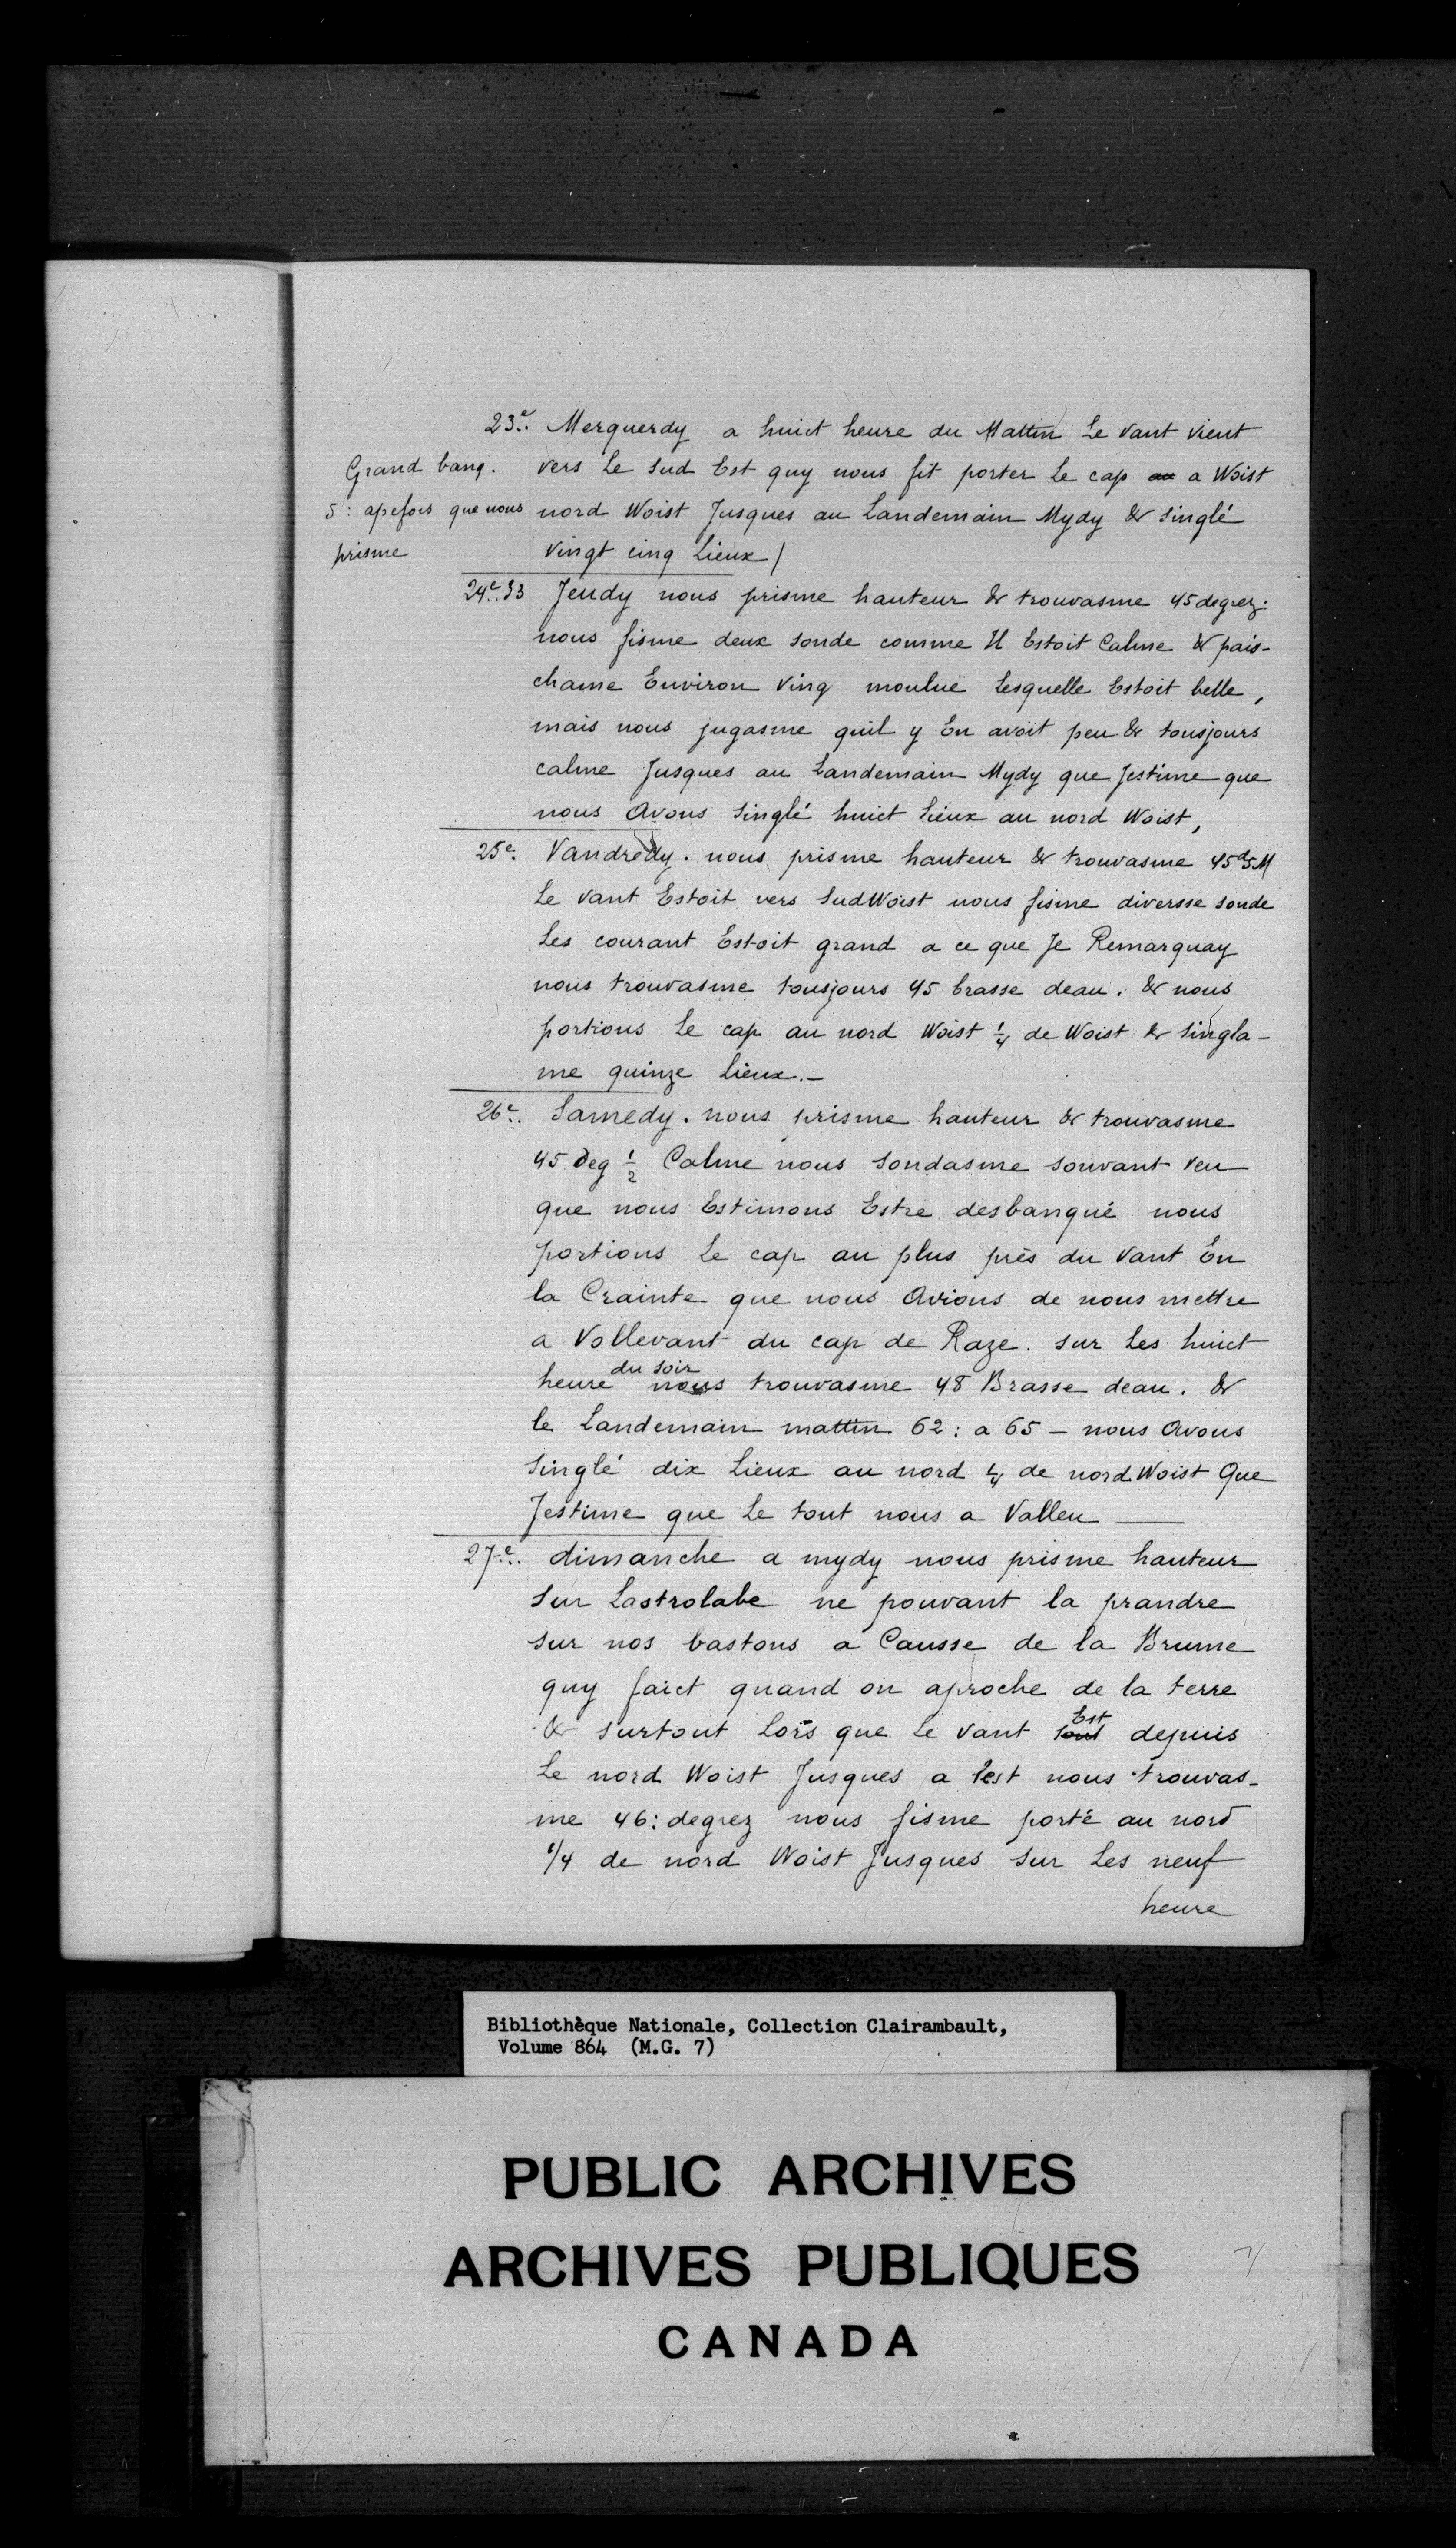 23e. Merquerdy a huict heure du Mattin Le vant vient
Grand banq. vers Le Sud Est quy nous fit porter Le cap au a Woist
5: apefois que nous nord Woist Jusques au Landemain Mydy & singlé
prisme vingt cinq Lieux /
24e. 33 Jeudy nous prisme hauteur & trouvasme 45 degrez:
nous fisme deux sonde comme Il Estoit Calme & pais-
chame Environ Ving moulue Lesquelle Estoit belle,
mais nous jugasme quil y En avoit peu & tousjours
calme Jusques au Landemain Mydy que Jestime que
nous avons singlé huict lieux au nord Woist,
25e. Vandredy. nous prisme hauteur & trouvasme 45d5M
Le vant Estoit vers SudWoist nous fisme diversse sonde
Les courant Estoit grand a ce que Je Remarquay
nous trouvasme tousjours 45 brasse deau. & nous
portions Le cap au nord Woist 1/4 de Woist & singla-
me quinze Lieux.-
26e. Samedy. nous prisme hauteur & trouvasme
45 Deg 1/2 Calme nous sondasme souvant veu
que nous Estimons Estre desbanqué nous
portions Le cap au plus près du vant En
la Crainte que nous avions de nous mettre
a Vollevant du cap de Raze. sur Les huict
heure du soir nous trouvasme 48 Brasse deau. &
le Landemain mattin 62: a 65 - nous avons
singlé dix Lieux au nord 1/4 de nord Woist Que
Jestime que Le tout nous a Valleu —
27e. dimanche a mydy nous prisme hauteur
sur Lastrolabe ne pouvant la prandre
sur nos bastons a Causse de la Brume
quy faict quand on aproche de la terre
& surtout Lors que Le vant Est depuis
Le nord Woist Jusques a lest nous trouvas-
me 46: degrez nous fisme porté au nord
1/4 de nord Woist Jusques sur Les neuf
heure
Bibliothèque Nationale, Collection Clairambault,
Volume 864 (M.G. 7)
PUBLIC ARCHIVES
ARCHIVES PUBLIQUES
CANADA